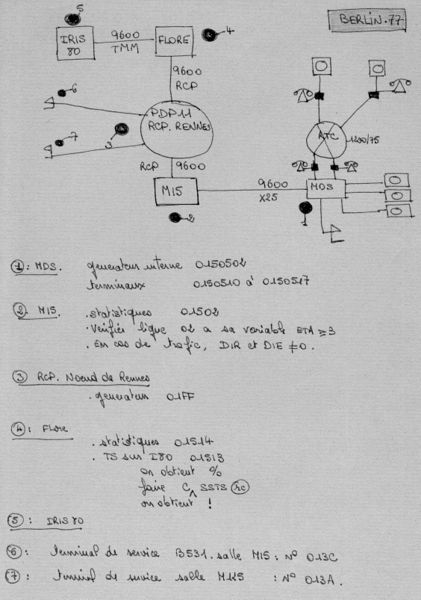 BERLIN.77
5
IRIS 80
9600
TMM
FLORE
4
9600
RCP
6
PDP11
RCP. RENNES
7
3
ATC
1200/75
RCP
9600
M15
9600
X25
MDS
2
1
①: MDS. generateur interne 0150502
terminaux 0150510 à 0150517
②. M15. .statistiques 01502
.Vérifier ligne 02 a sa variable ETA ≥ 3
. En cas de trafic, DIR et DIE ≠ 0.
③ RCP. Noeud de Rennes
. generateur 01FF
④: Flore
. statistiques 01514
. TS sur I80 01513
on obtient %
faire C^ SSTS (rc)
on obtient !
⑤: IRIS 80
⑥: terminal de service B531. salle M15 : N° 013C
⑦: terminal de service salle M15 : N° 013A.